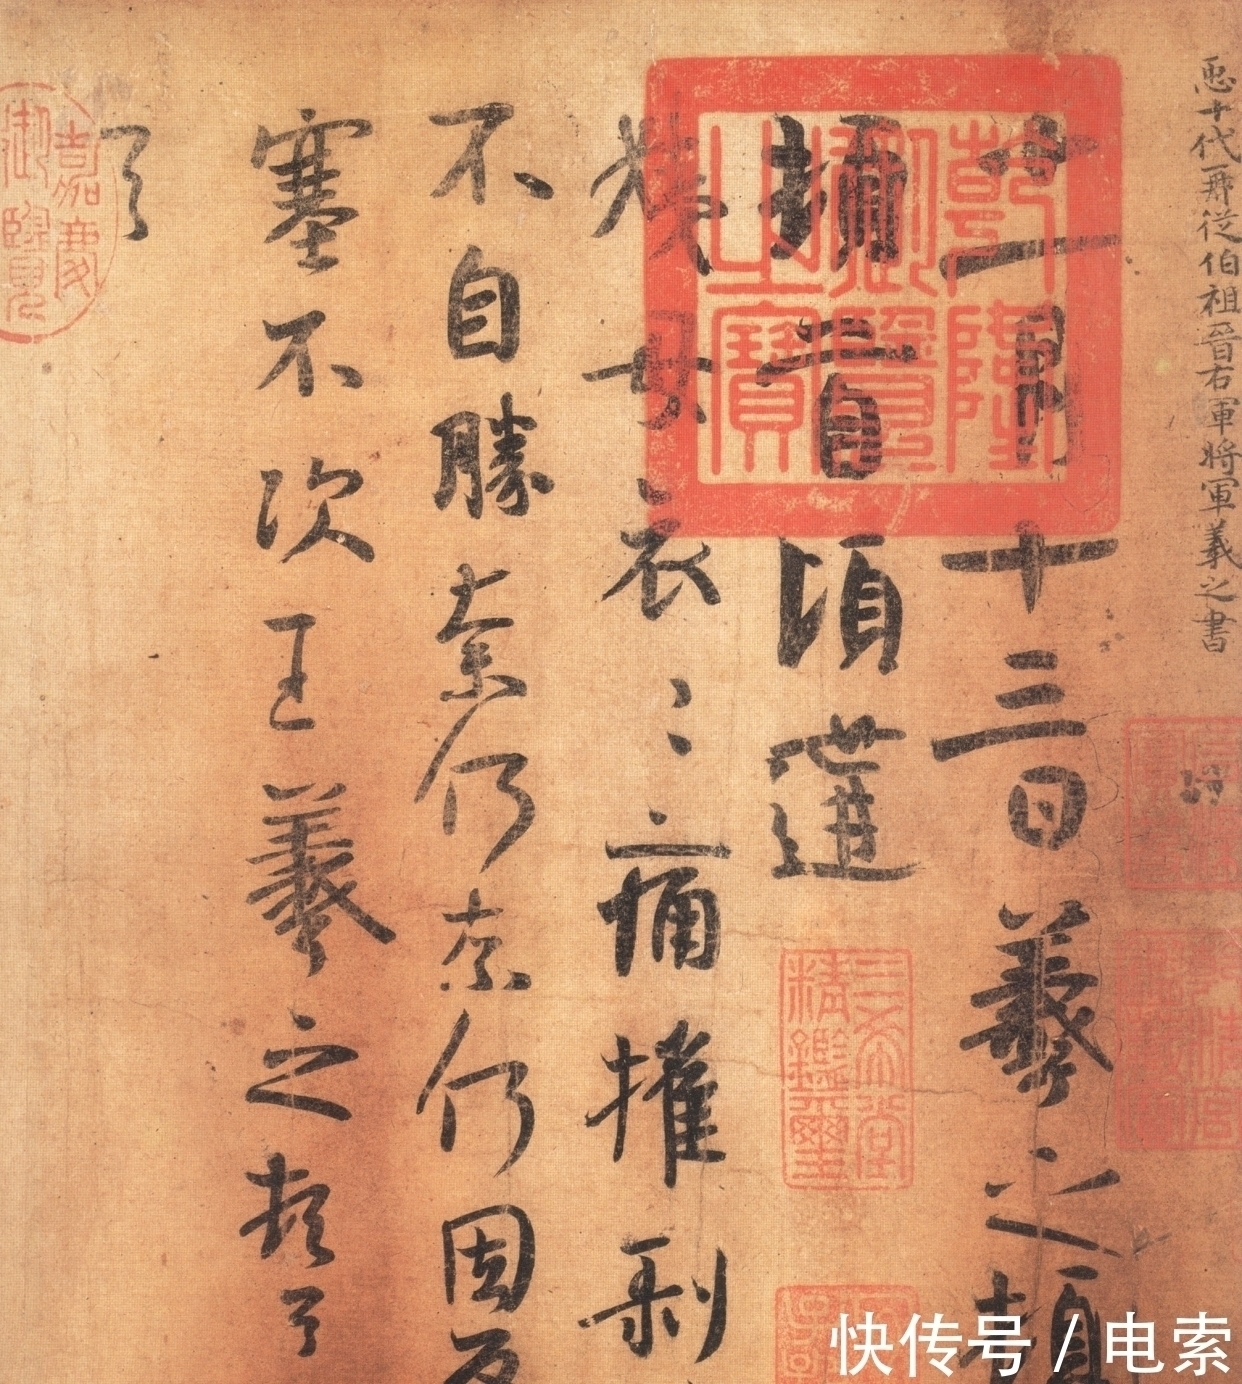 𢘑十代再從伯祖晉右軍將軍羲之書
十一月十三日羲之頓
乾隆
御覽
之寶
頓首頃遘
三希堂
精鑑璽
姨母哀〻痛摧剝
不自勝奈何奈何因反
塞不次王羲之頓首
首
嘉慶
御覽
快传号 / 电索